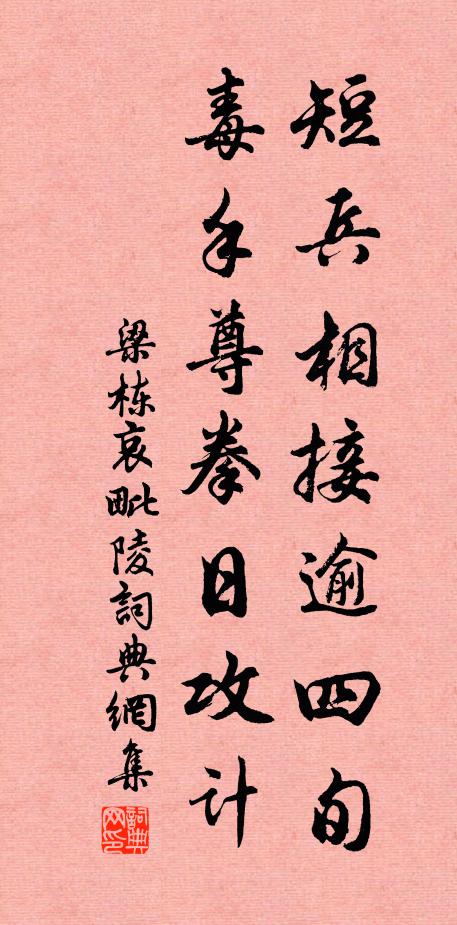 短兵相接逾四旬
毒手尊拳日攻计
梁栋哀毗陵詞典網集
詞典网印